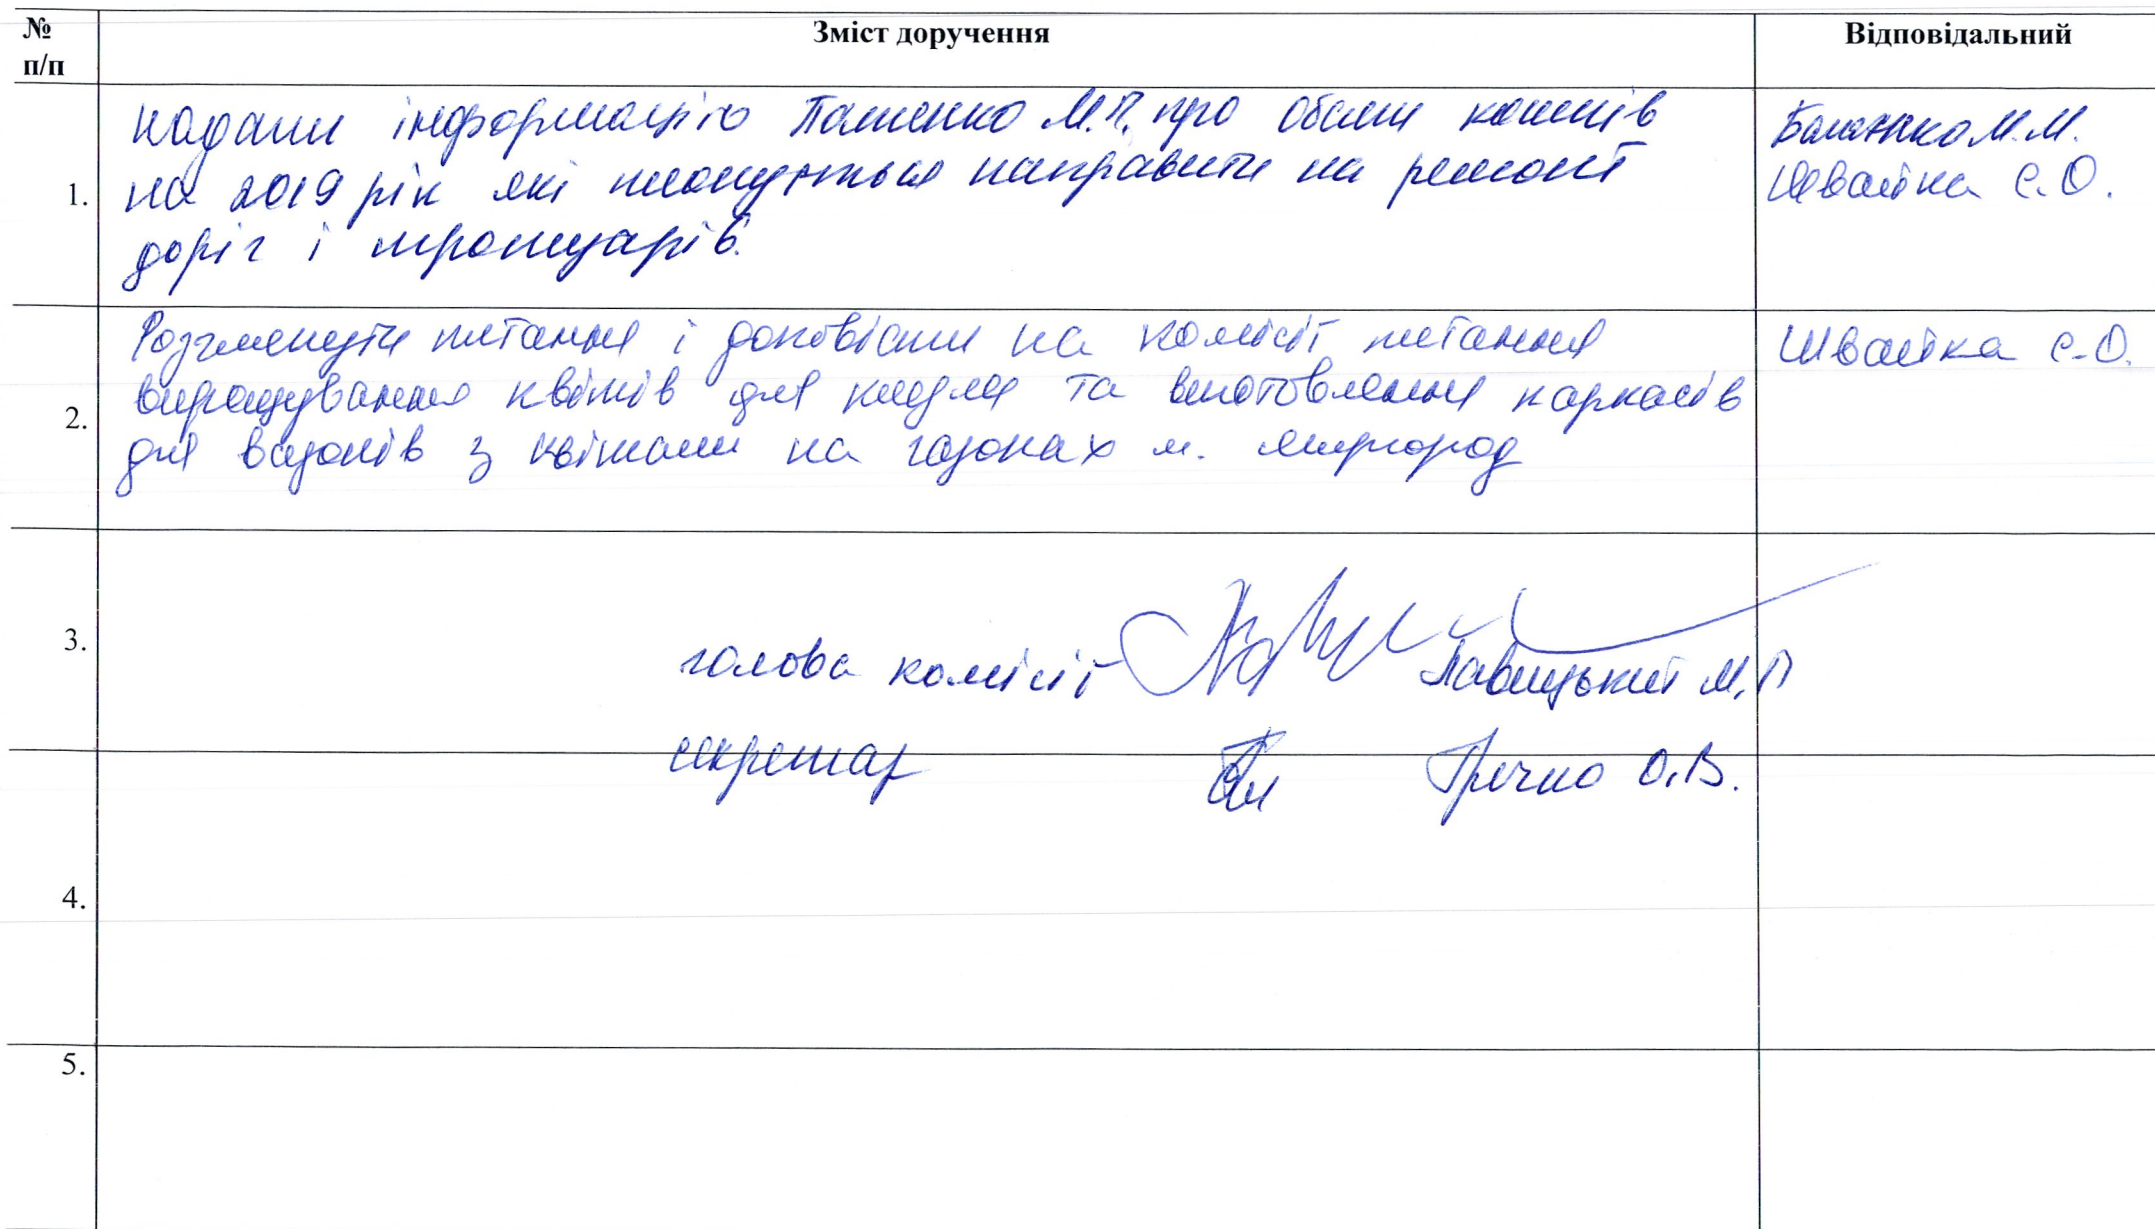 № п/п Зміст доручення Відповідальний
надати інформацію Пащенко М.П. про обсяги коштів
на 2019 рік які плануються направити на ремонт
1.
доріг і тротуарів.
Балюкко М.М.
Швайка С.О.
Розглянути питання і доповісти на комісії питання
вирощування квітів для клумб та виготовлення каркасів
2.
для вазонів з квітами на газонах м. Миргород
Швайка С.О.
3.
голова комісії Лавицький М.П
секретар Гречко О.В.
4.
5.